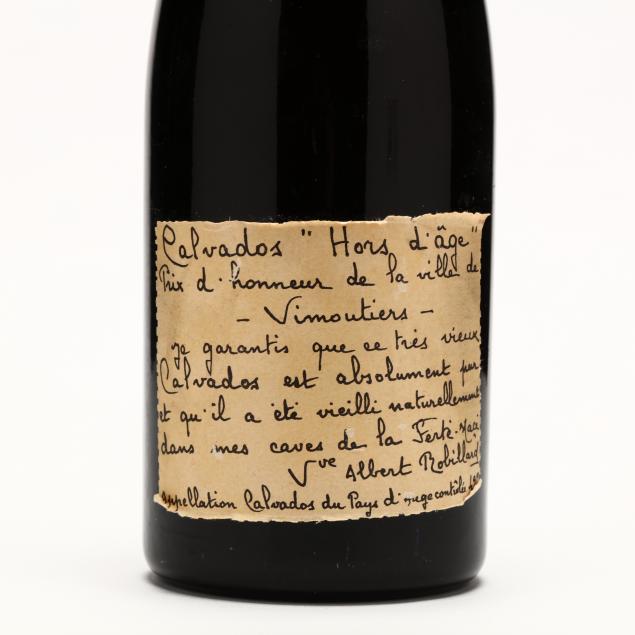 Calvados "Hors d'âge"
Prix d'honneur de la ville de
- Vimoutiers -
Je garantis que ce très vieux
Calvados est absolument pur
et qu'il a été vieilli naturellement
dans mes caves de la Ferté-Macé
Vve Albert Robillard
appellation Calvados du Pays d'auge contrôlée